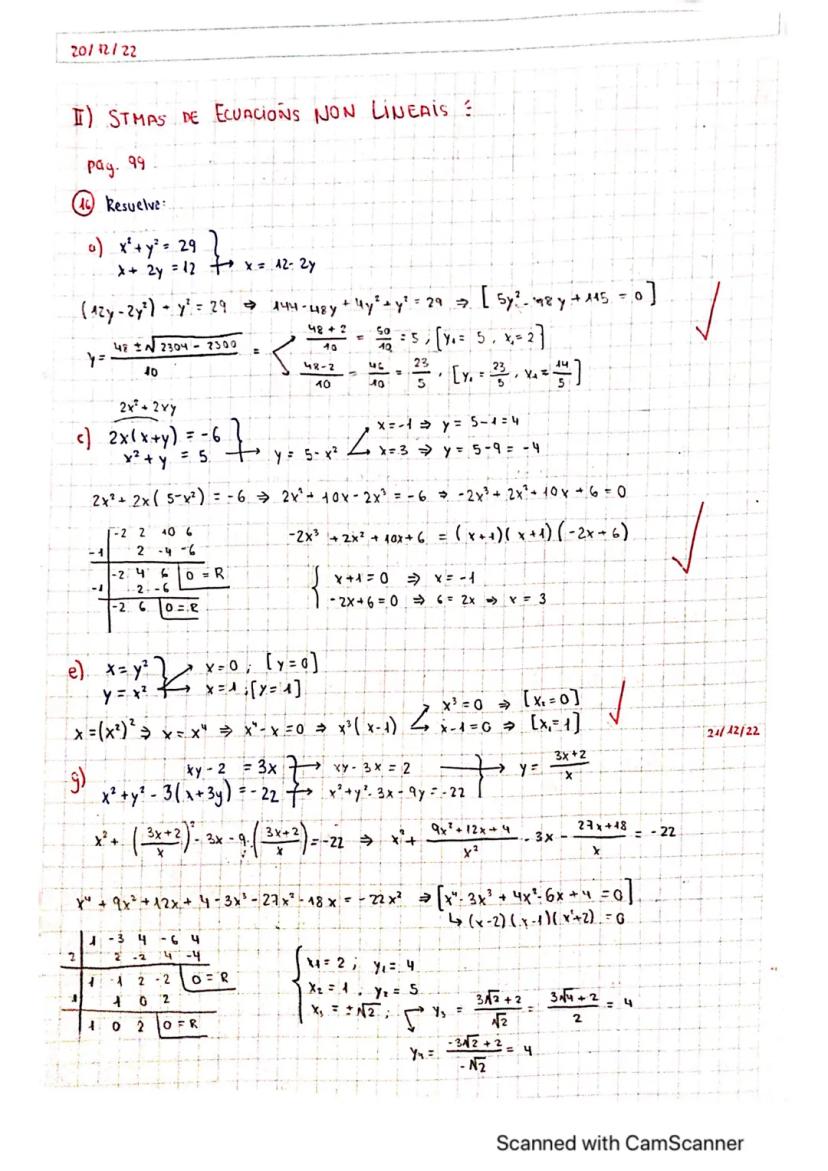 20/12/22
II) STMAS DE ECUACIÓNS NON LINEAIS :
pag. 99.
16 Resuelve:
a) x² + y² = 29
x + 2y = 12 → x = 12 - 2y
(12y - 2y²) + y² = 29 ⇒ 144 - 48y + 4y² + y² = 29 ⇒ [5y² - 48y + 115 = 0]
y = (48 ± √2304 - 2300)/10 = (48 + 2)/10 = 50/10 = 5, [y₁ = 5, x₁ = 2]
(48 - 2)/10 = 46/10 = 23/5, [y₁ = 23/5, x₁ = 14/5]
2x² + 2xy
c) 2x(x+y) = -6
x² + y = 5 → y = 5 - x²
x = -1 ⇒ y = 5 - 1 = 4
x = 3 ⇒ y = 5 - 9 = -4
2x² + 2x(5 - x²) = -6 ⇒ 2x² + 10x - 2x³ = -6 ⇒ -2x³ + 2x² + 10x + 6 = 0
-2 2 10 6
-1 2 -4 -6
-2 4 6 0 = R
-1 2 -6
-2 6 0 = R
-2x³ + 2x² + 10x + 6 = (x+1)(x+1)(-2x+6)
x + 1 = 0 ⇒ x = -1
-2x + 6 = 0 ⇒ 6 = 2x ⇒ x = 3
e) x = y² x = 0; [y = 0]
y = x² x = 1; [y = 1]
x = (x²)² ⇒ x = x⁴ ⇒ x⁴ - x = 0 ⇒ x³(x-1)
x³ = 0 ⇒ [x₂ = 0]
x - 1 = 0 ⇒ [x₁ = 1]
21/12/22
g) xy - 2 = 3x → xy - 3x = 2 → y = (3x+2)/x
x² + y² - 3(x+3y) = -22 → x² + y² - 3x - 9y = -22
x² + ((3x+2)/x)² - 3x - 9·((3x+2)/x) = -22 ⇒ x² + (9x² + 12x + 4)/x² - 3x - (27x+18)/x = -22
x⁴ + 9x² + 12x + 4 - 3x³ - 27x² - 18x = -22x² ⇒ [x⁴ - 3x³ + 4x² - 6x + 4 = 0]
↳ (x-2)(x-1)(x²+2) = 0
1 -3 4 -6 4
2 2 -2 4 -4
1 -1 2 -2 0 = R
1 1 0 2
1 0 2 0 = R
x₁ = 2; y₁ = 4
x₂ = 1, y₂ = 5
x₃ = ±√2; y₃ = (3√2 + 2)/√2 = (3√4 + 2)/2 = 4
y₄ = (-3√2 + 2)/-√2 = 4
Scanned with CamScanner